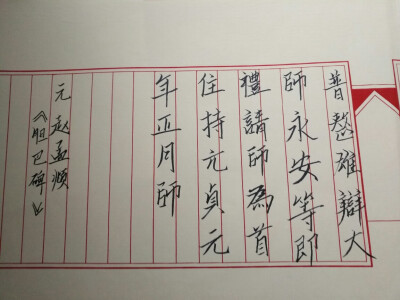 普整雄辯大
師永安等即
禮請師為首
住持元貞元
年正月師
元 赵孟頫
《胆巴碑》